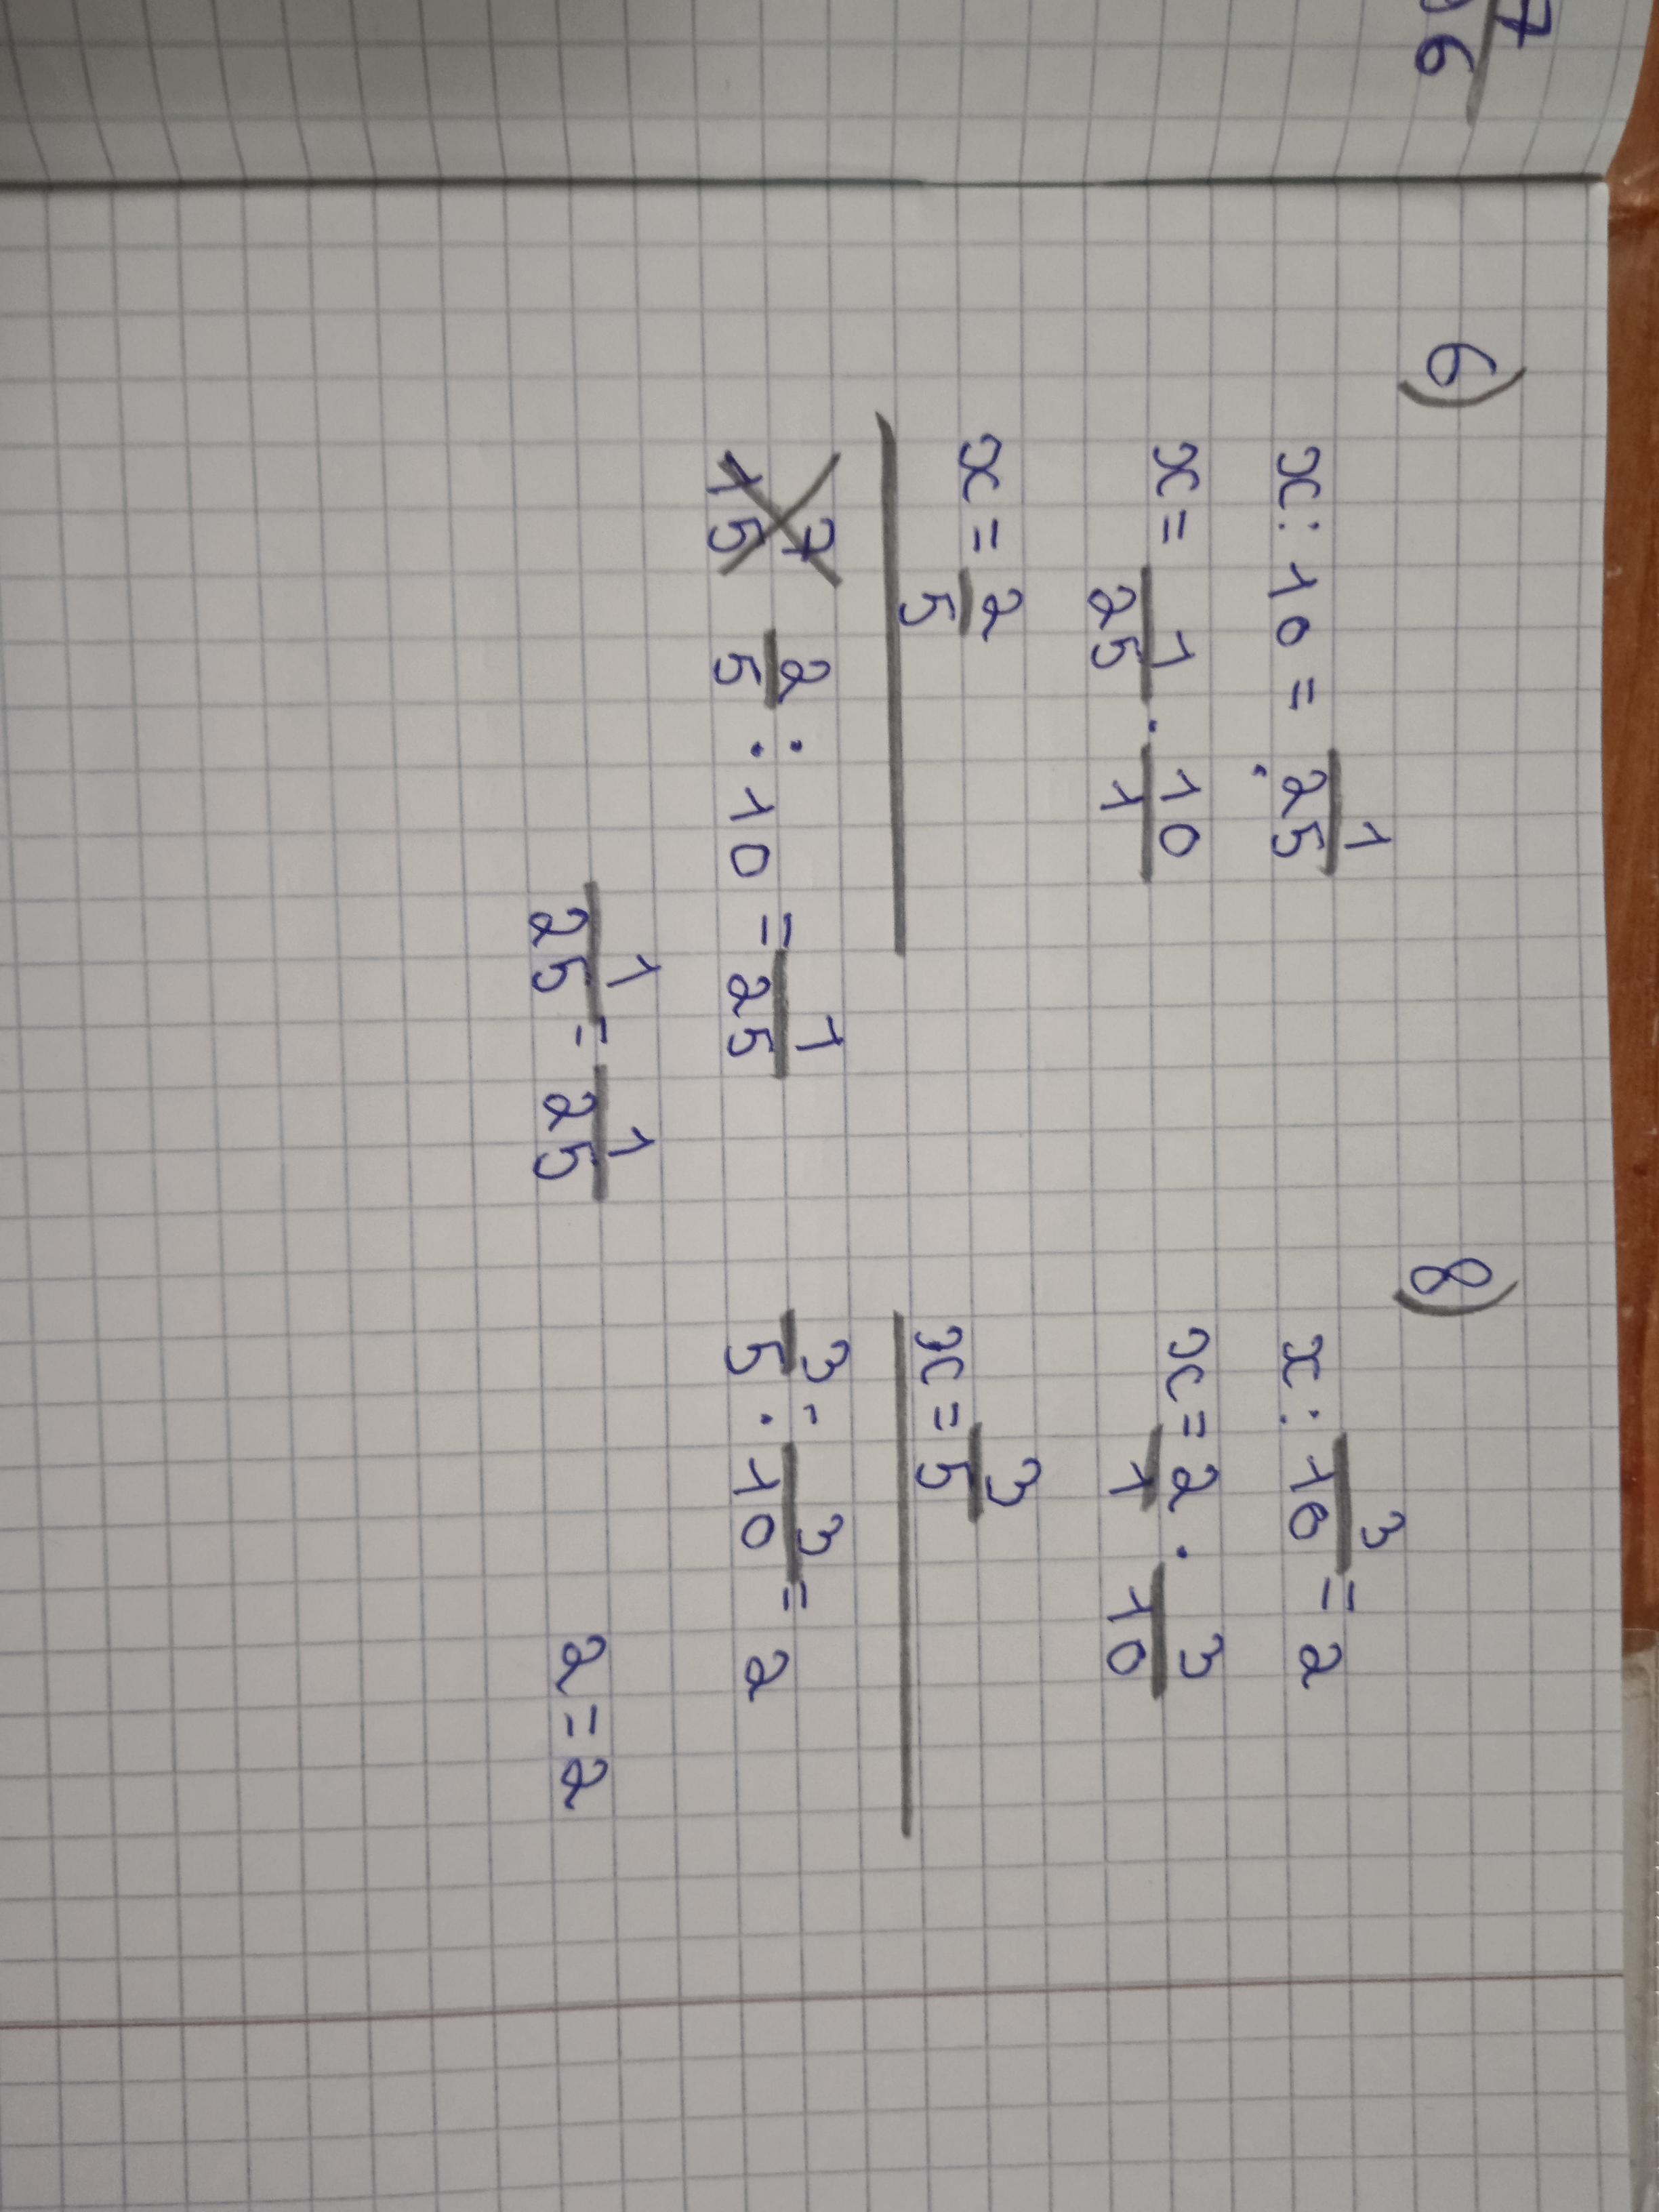 7
96
6)
x : 10 = 1/25
x = 1/25 · 10/1
x = 2/5
2/5 : 10 = 1/25
1/25 = 1/25
8)
x : 3/10 = 2
x = 2/1 · 3/10
x = 3/5
3/5 : 3/10 = 2
2 = 2